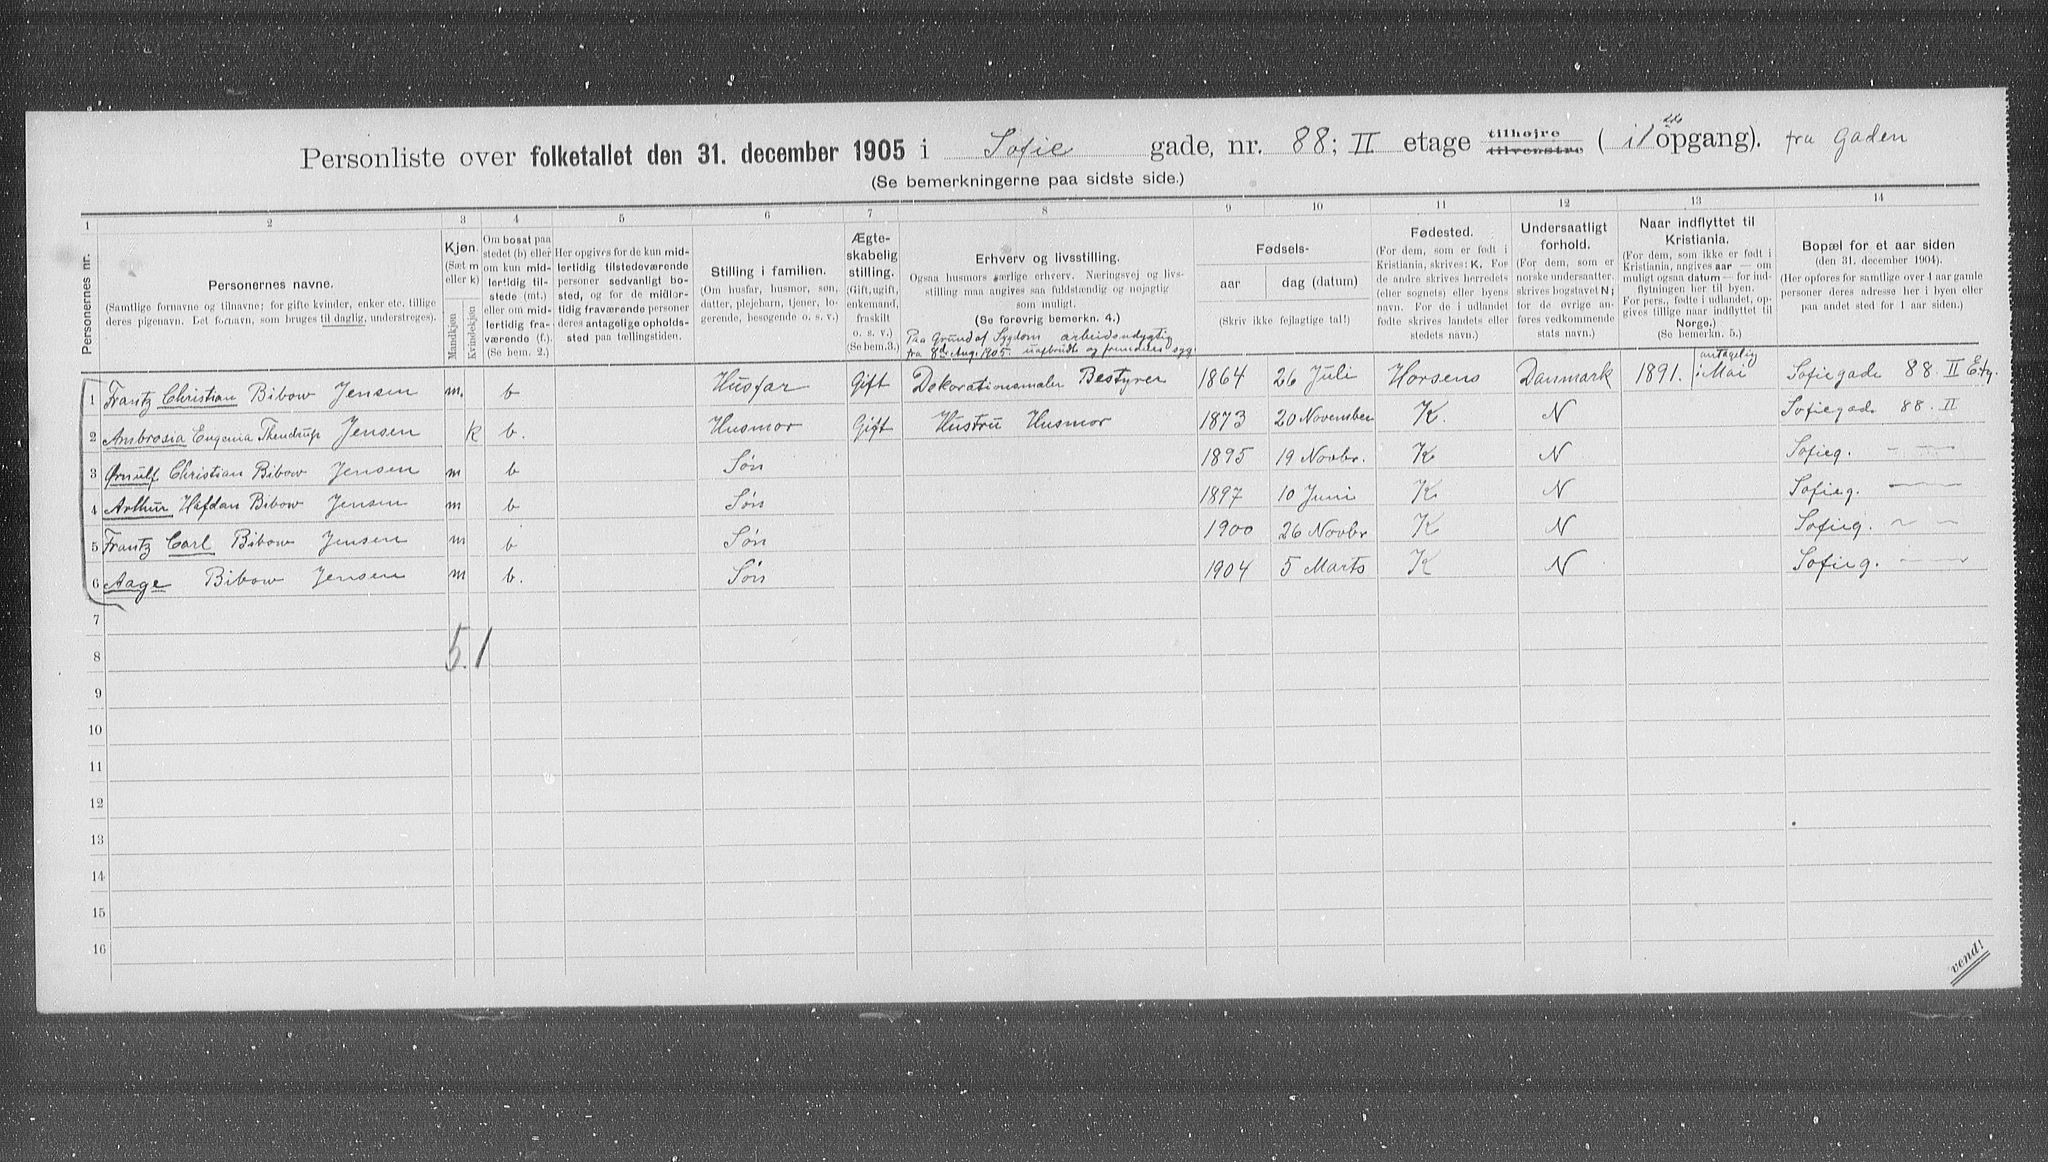 Personliste over folketallet den 31. december 1905 i Sofie gade, nr. 88; II etage tilhøjre tilvenstre ( i opgang). fra Gaden
(Se bemerkningerne paa sidste side.)
1 2 3 4 5 6 7 8 9 10 11 12 13 14
Personernes nr.
Personernes navne.
(Samtlige fornavne og tilnavne; for gifte kvinder, enker etc. tillige
deres pigenavn. Det fornavn, som bruges til daglig, understreges).
Kjøn.
(Sæt m
eller k)
Mandkjøn
Kvindekjøn
Om bosat paa
stedet (b) eller
om kun mid-
lertidig til-
stede (mt.)
eller om mid-
lertidig fra-
værende (f.).
(Se bem. 2.)
Her opgives for de kun mid-
lertidig tilstedeværende
personer sedvanligt bo-
sted, og for de midler-
tidig fraværende personer
deres antagelige opholds-
sted paa tællingstiden.
Stilling i familien.
(Om husfar, husmor, søn,
datter, plejebarn, tjener, lo-
gerende, besøgende o. s. v.)
Ægte-
skabelig
stilling.
(Gift, ugift,
enkemand,
fraskilt
o. s. v.)
(Se bem.3.)
Erhverv og livsstilling.
Ogsaa husmors særlige erhverv. Næringsvej og livs-
stilling maa angives saa fuldstændig og nøjagtig
som muligt.
(Se forøvrig bemerkn. 4.)
Paa Grund af Sygdom arbeidsudygtig
fra 8de Aug. 1905. uafbrudt og fremdeles syg.
Fødsels-
aar
dag (datum)
(Skriv ikke fejlagtige tal!)
Fødested.
(For dem, som er født i
Kristiania, skrives: K. For
de andre skrives herredets
(eller sognets) eller byens
navn. For de i udlandet
fødte skrives landets eller
stedets navn.)
Undersaatligt
forhold.
(For de
norske undersaatter
skrives bogstavet N;
for de øvrige an-
føres vedkommende
stats navn.)
Naar indflyttet til
Kristiania.
(For dem, som ikke er født i
Kristiania, angives aar — om
muligt ogsaa datum — for ind-
flytningen her til byen.
For pers., fødte i udlandet, op-
gives tillige naar indflyttet til
Norge.)
(Se bemerkn. 5.)
Bopæl for et aar siden
(den 31. december 1904).
(Her opføres for samtlige over 1 aar gamle
personer deres adresse her i byen eller
paa andet sted for 1 aar siden.)
1 Frantz Christian Bibow Jensen m. b Husfar Gift Dekorationsmaler Bestyrer 1864 26 Juli Horsens Danmark 1891. antagelig i Mai Sofiegade 88 II Etg.
2 Ambrosia Eugenia Jensen k b. Husmor Gift Hustru Husmor 1873 20 November K. N Sofiegade 88. II
3 Ørnulf Christian Bibow Jensen m b Søn 1895 19 Novbr. K N Sofieg. — —
4 Arthur Halfdan Bibow Jensen m b Søn 1897 10 Juni K N Sofieg. —
5 Frantz Carl Bibow Jensen m b Søn 1900 26 Novbr K N Sofieg. — —
6 Aage Bibow Jensen m b. Søn 1904 5 Marts K N Sofieg. — —
7
5. 1
8
9
10
11
12
13
14
15
16
vend!